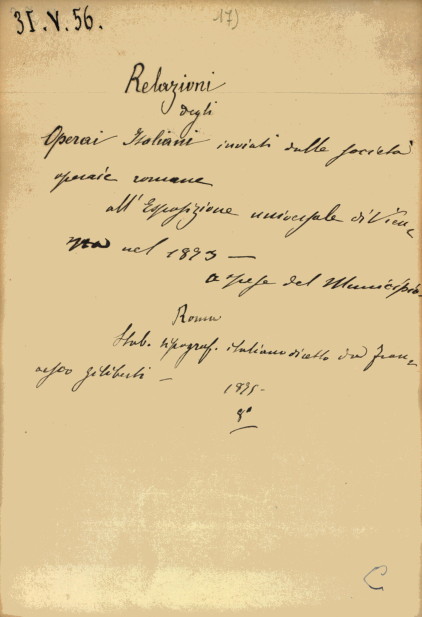 31.V.56. 17)
Relazioni
degli
Operai Italiani inviati dalle società
operaie romane
all'Esposizione universale di Vien-
na nel 1873 —
a spese del Municipio.
Roma
Stab. tipograf. italiano diretto da Fran-
cesco Giliberti —
1875-
8°
C